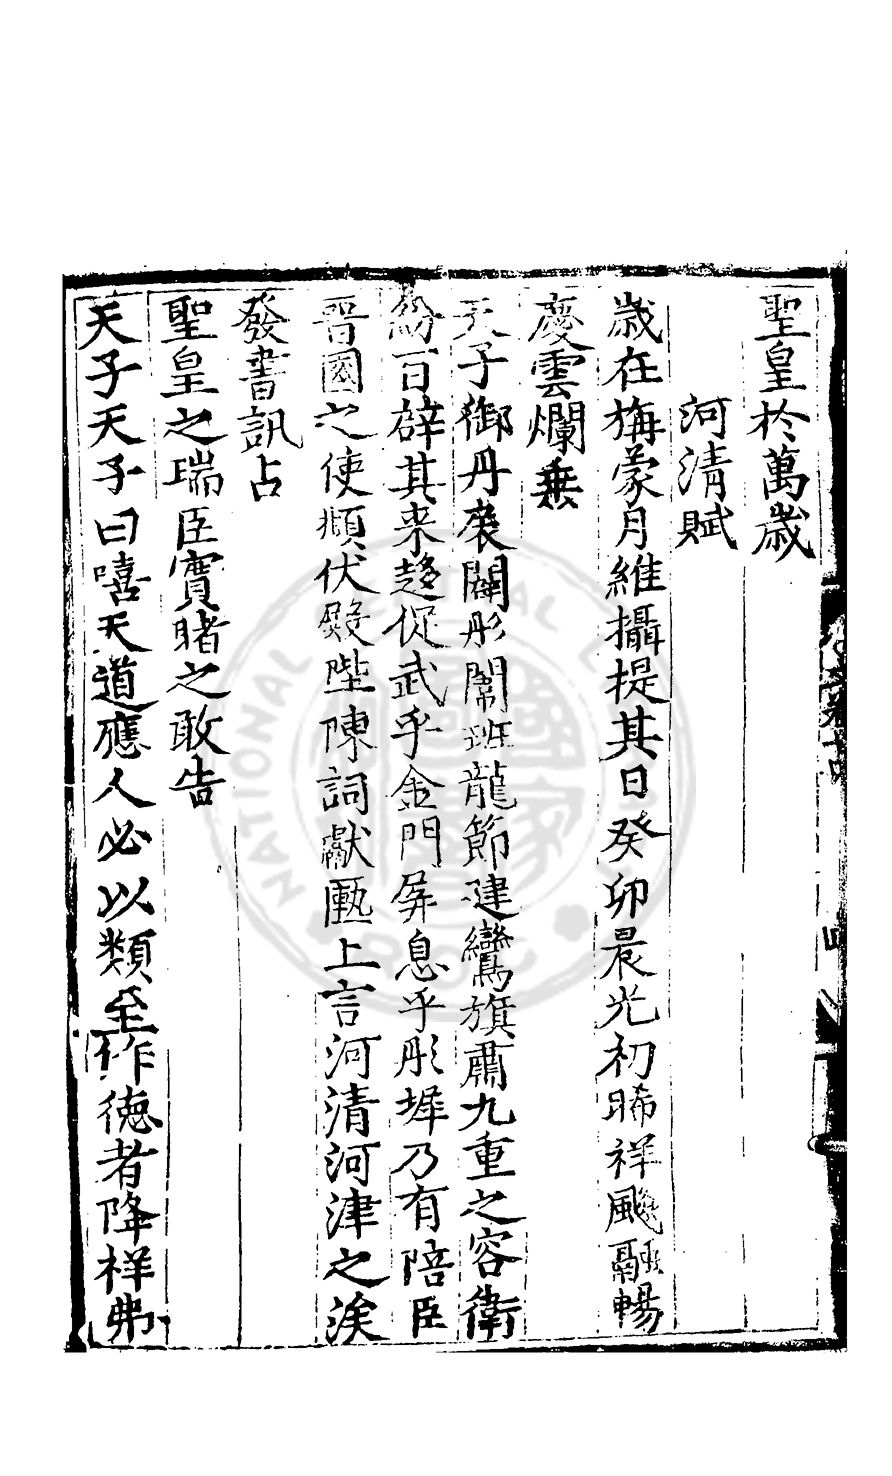 聖皇於萬歲
河清賦
歲在旃蒙月維攝提其日癸卯晨光初晞祥颷融暢
慶雲爛垂
天子御丹扆闢彤闈班龍節建鸞旗肅九重之容衛
紛百辟其来趍促武乎金門屏息乎彤墀乃有陪臣
晋國之使頫伏殿陛陳詞獻匭上言河清河津之涘
發書訊占
聖皇之瑞臣實睹之敢告
天子天子曰嘻天道應人必以類至作德者降祥弗
卷十四
四
NATIONAL CENTRAL